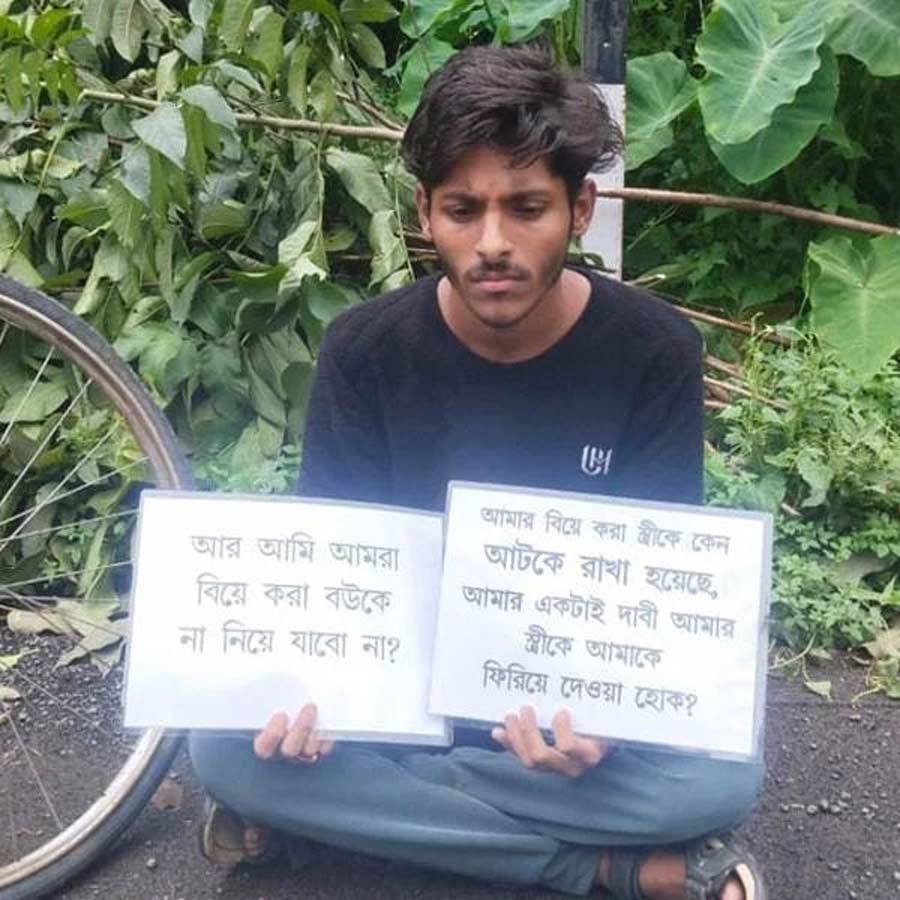 আর আমি আমরা
বিয়ে করা বউকে
না নিয়ে যাবো না?
আমার বিয়ে করা স্ত্রীকে কেন
আটকে রাখা হয়েছে,
আমার একটাই দাবী আমার
স্ত্রীকে আমাকে
ফিরিয়ে দেওয়া হোক?